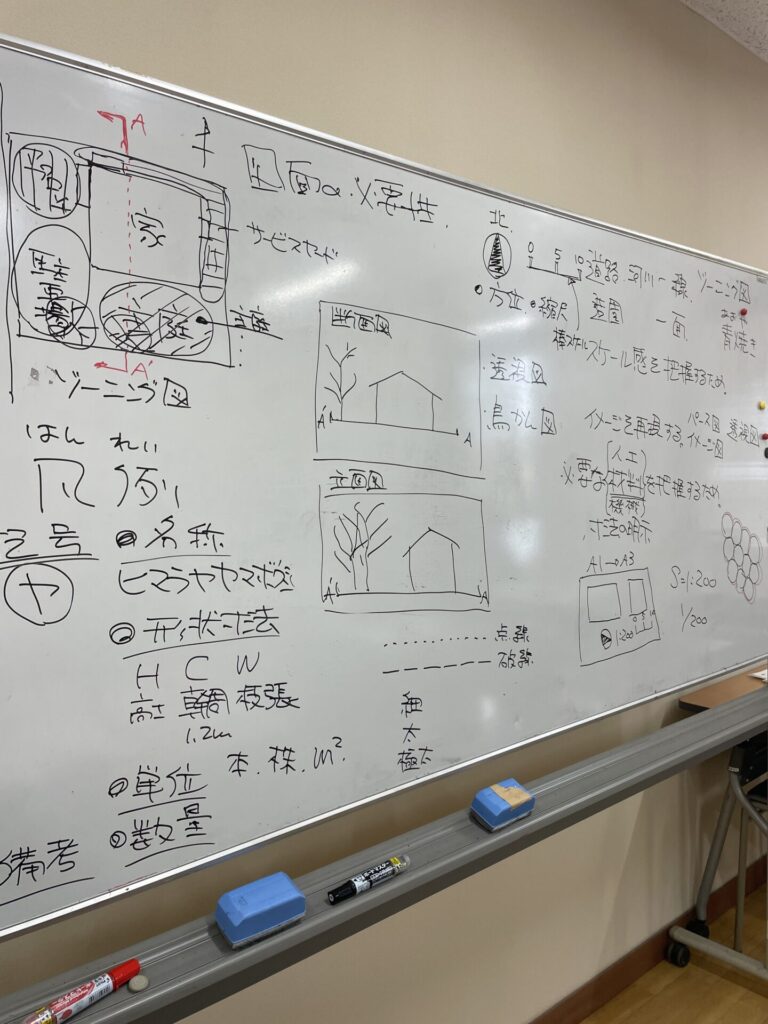 A
家
サービスヤード
主庭
A'
ゾーニング図
図面の必要性
はんれい
凡例
記号
ヤ
名称
ヒマラヤヤマボウシ
形状寸法
H C W
高さ 幹周 枝張
1.2m
単位 本.株.m².
数量
備考
断面図
A' A
立面図
A' A
・透視図
・鳥かん図
点線
破線
細
太
極太
北
0 5 10
方位. 縮尺
道路 河川 ー 線.
ゾーニング図
ー 面.
あおや
青焼き
棒スケール スケール感を把握するため.
イメージを再現する.
パース図 透視図
イメージ図
(人工)
必要な材料を把握するため.
機械
寸法の明示
A1→A3
1:200
0 5 10
S=1:200
1/200